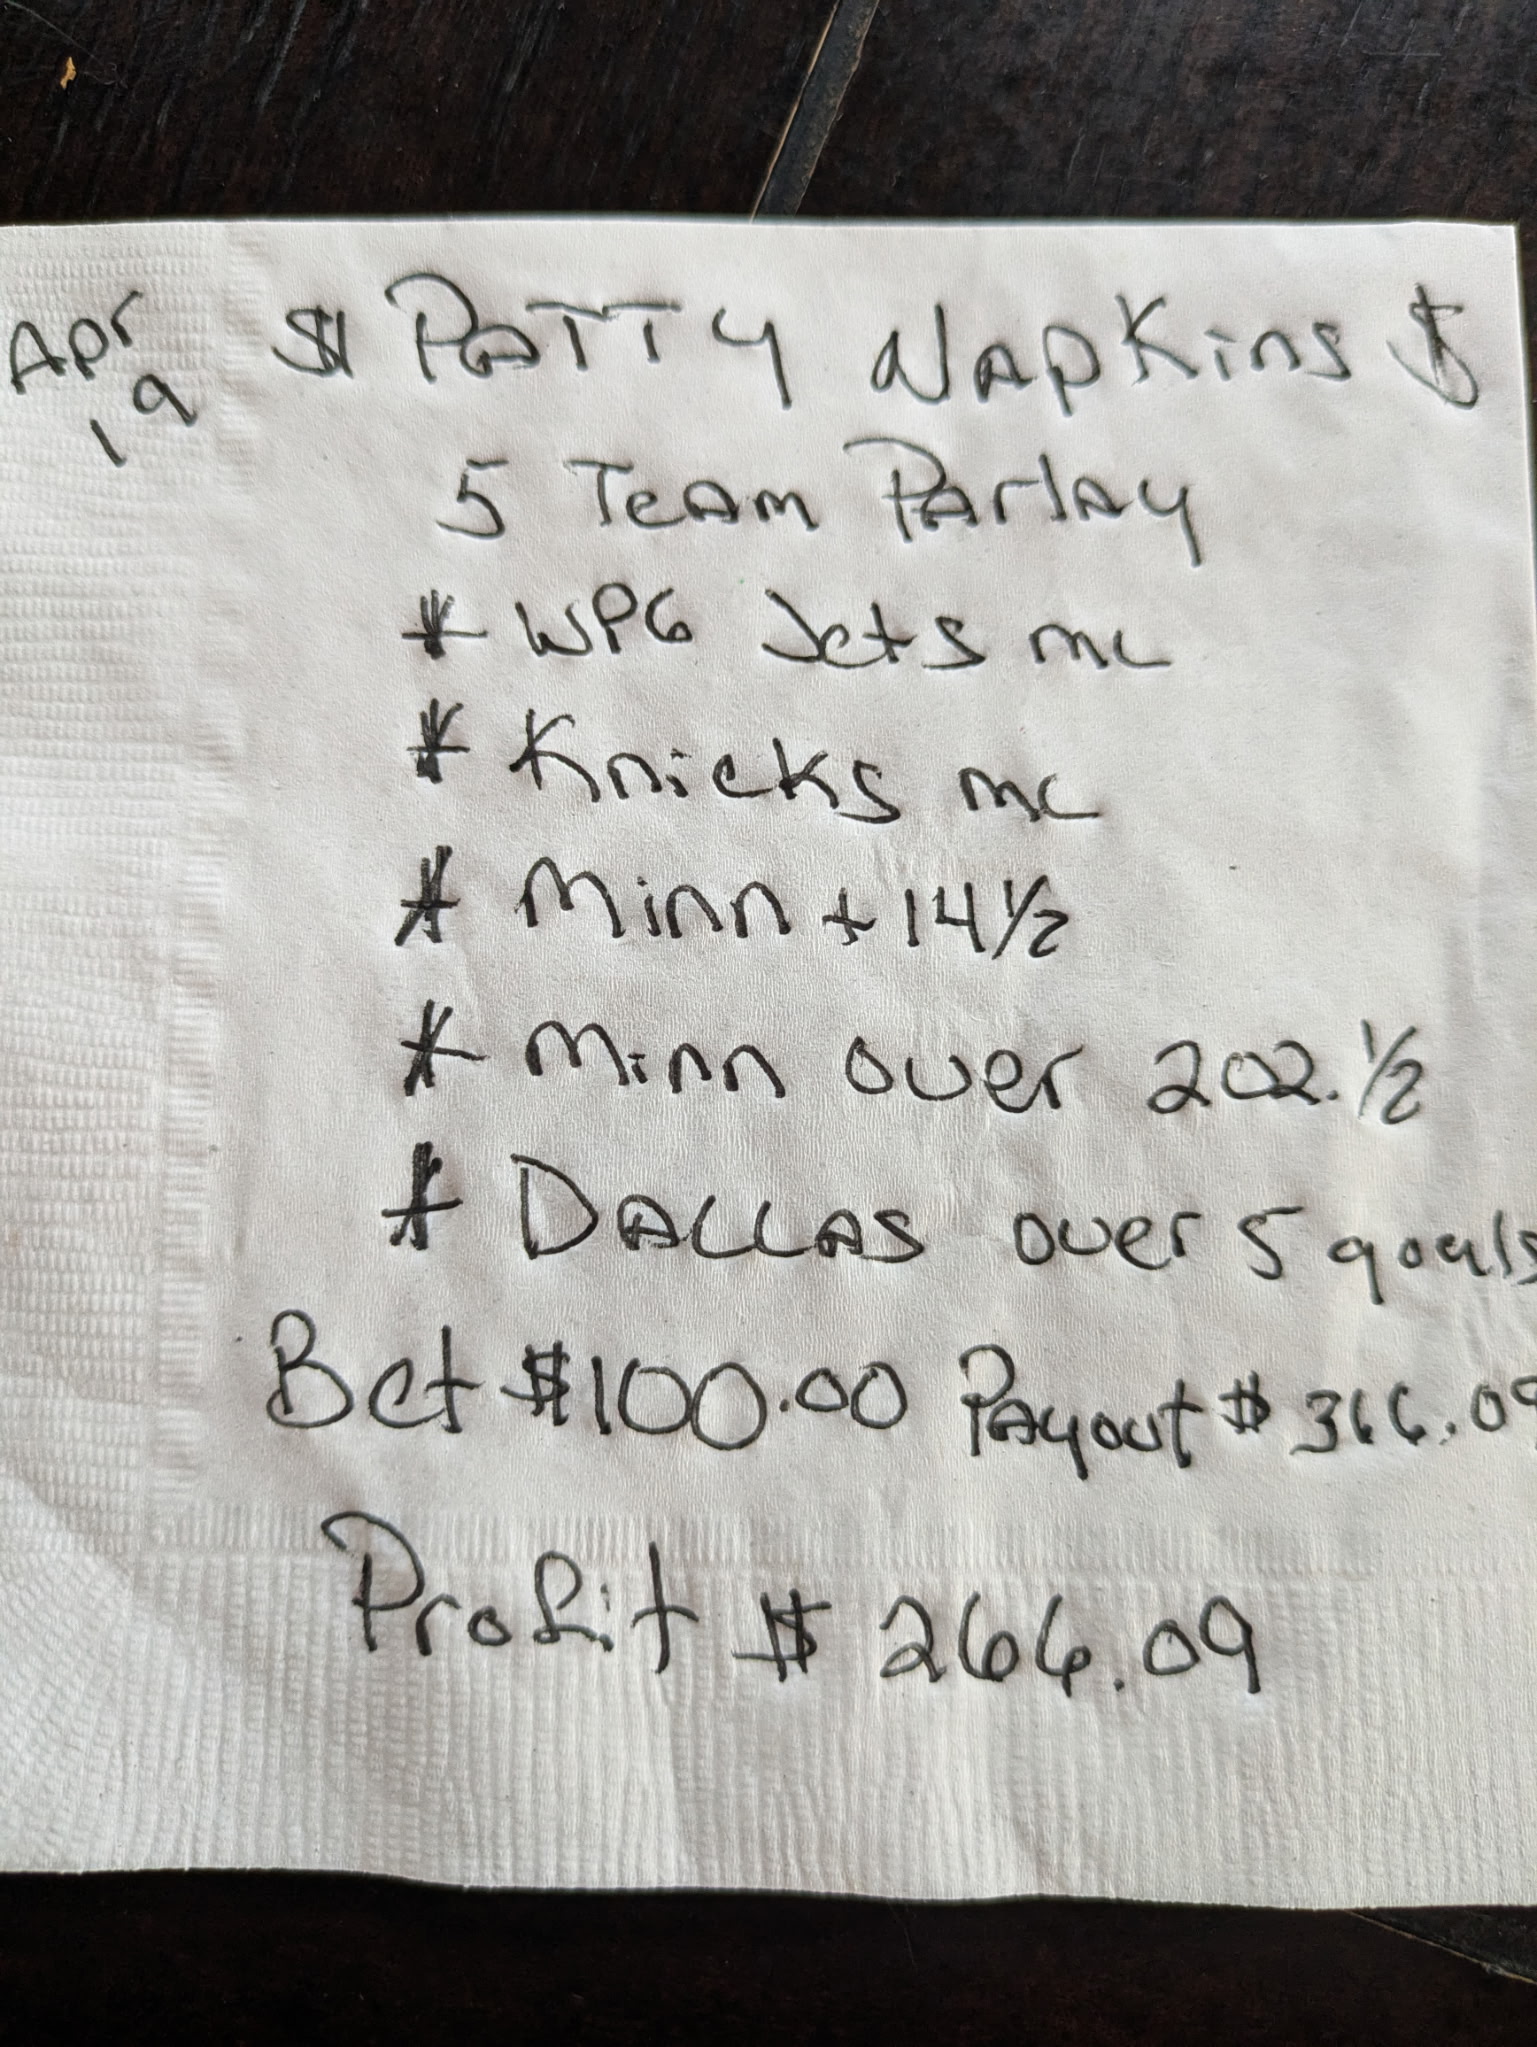 Apr 19 $ PATTY NAPKins $
5 TeAm PArlAy
* WPG Jets ML
* Knicks ML
* Minn + 14 1/2
* Minn over 202. 1/2
* DALLAS over 5 goals
Bet $100.00 PAyout $ 366.09
Profit $ 266.09